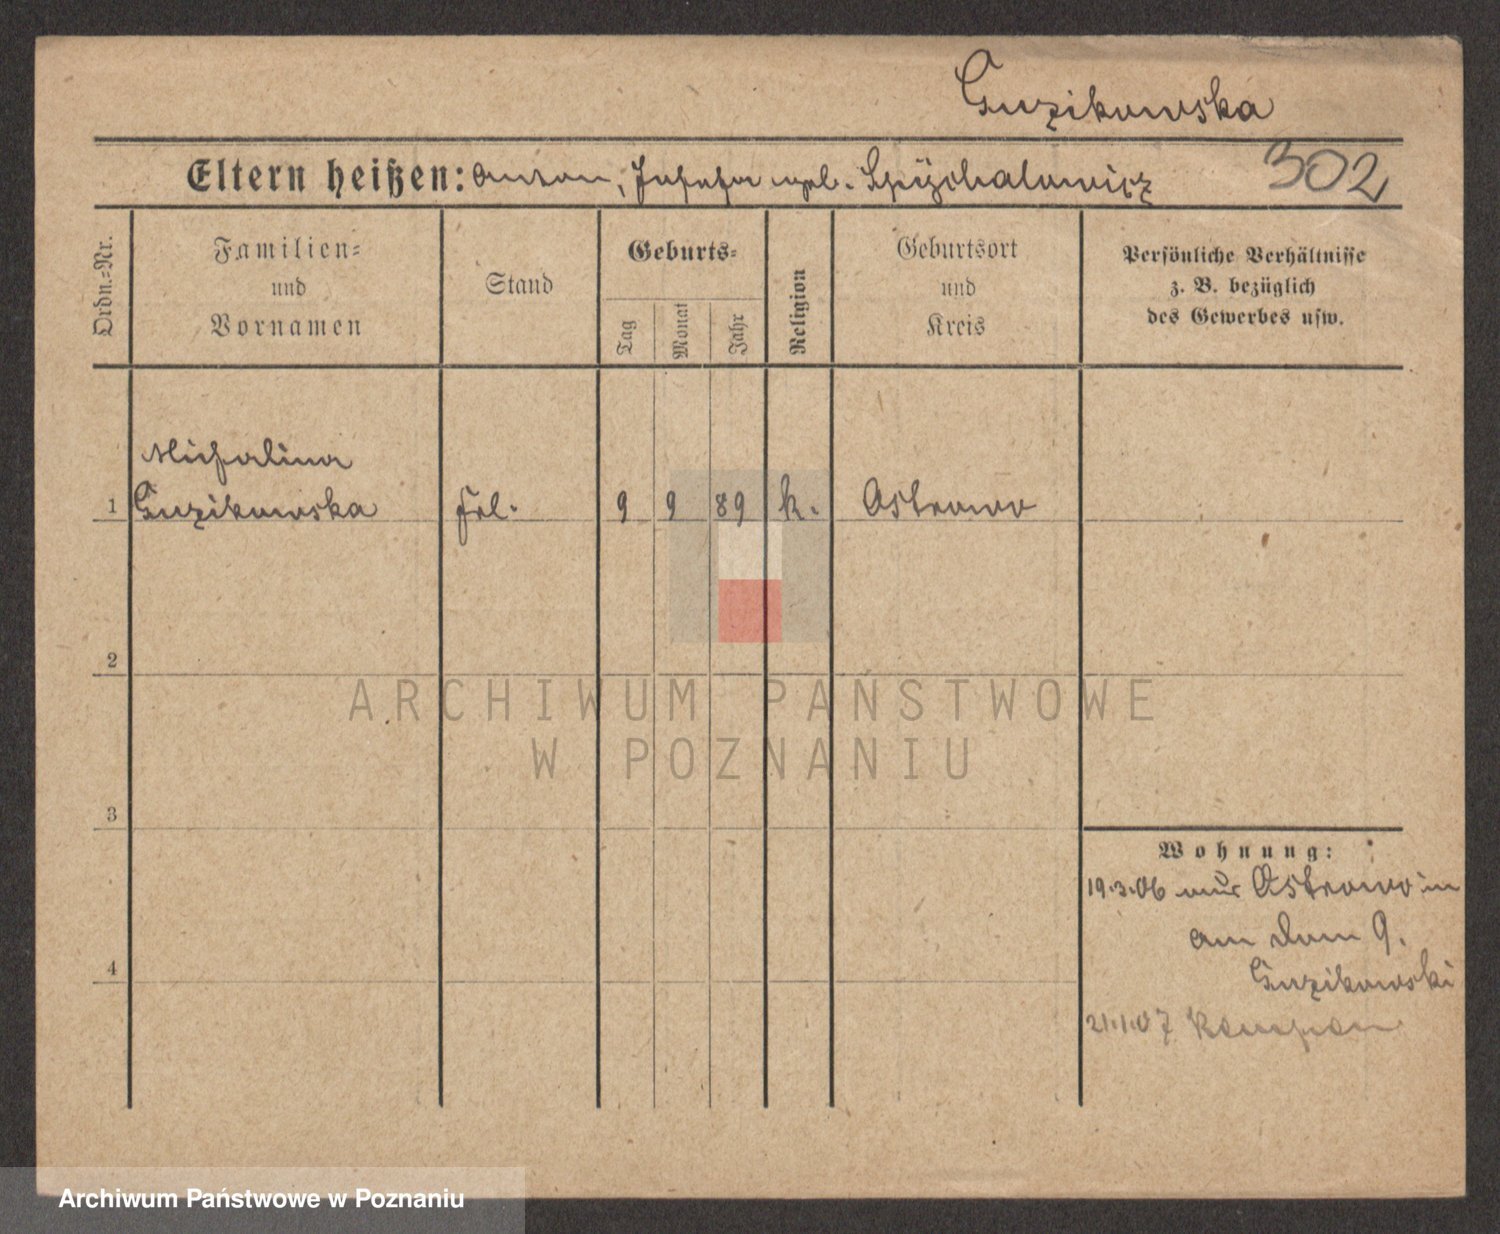 Guzikowska
Eltern heißen: Anton, Josefa geb. Spÿchalowicz 302
Ordn.=Nr.
Familien=
und
Vornamen
Stand
Geburts=
Tag
Monat
Jahr
Religion
Geburtsort
und
Kreis
Persönliche Verhältnisse
z. B. bezüglich
des Gewerbes usw.
Michalina
1 Guzikowska Frl. 9 9 89 k. Ostrowo
2
ARCHIWUM PAŃSTWOWE
W POZNANIU
3
Wohnung:
19.3.06 aus Ostrowo in
am Dom 9.
Guzikowski
4
21.1.07
Archiwum Państwowe w Poznaniu